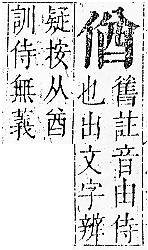 偤
舊註音由侍
也出文字辨
疑按从酋
訓侍無義